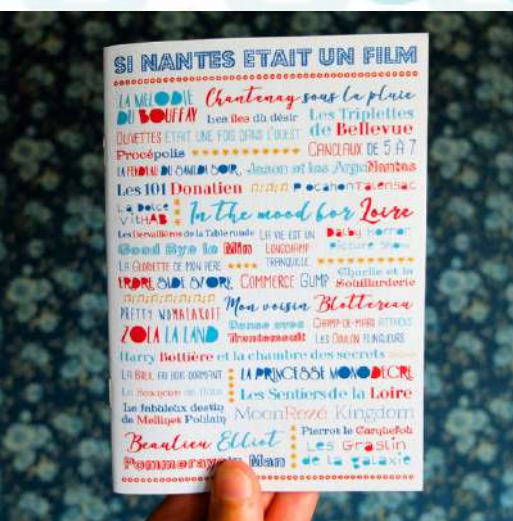 SI NANTES ETAIT UN FILM
LA MELODIE DU BOUFFAY
Chantenay sous la pluie
Les îles du désir
Les Triplettes de Bellevue
OLIVETTES ÉTAIT UNE FOIS DANS L'OUEST
Procépolis
CANCLAUX DE 5 À 7
Jason et les ArgoNantes
Les 101 Donatien
PocahonTalensac
La Dolce VitHAB
In the mood for Loire
Les Dervallières de la Table ronde
LA VIE EST UN LONGCHAMP TRANQUILLE
Dalby Horror Picture Show
Good Bye la Min
LA GLORIETTE DE MON PÈRE
ERDRE SIDE STORY
COMMERCE GUMP
Charlie et la Souillarderie
PRETTY WOMALAKOFF
Mon voisin Blottereau
ZOLA LA LAND
Danse avec Trentemoult
CHAMP-DE-MARS ATTACKS
LES DOULON FLINGUEURS
Harry Bottière et la chambre des secrets
LA BEIL AU BOIS DORMANT
LA PRINCESSE MONODECRE
Les Sentiers de la Loire
Le fabuleux destin de Mellinet Poulain
MoonRezé Kingdom
Beaulieu Elliot
Pierrot le Carquefou
Pommeraye Man
Les Graslin de la galaxie